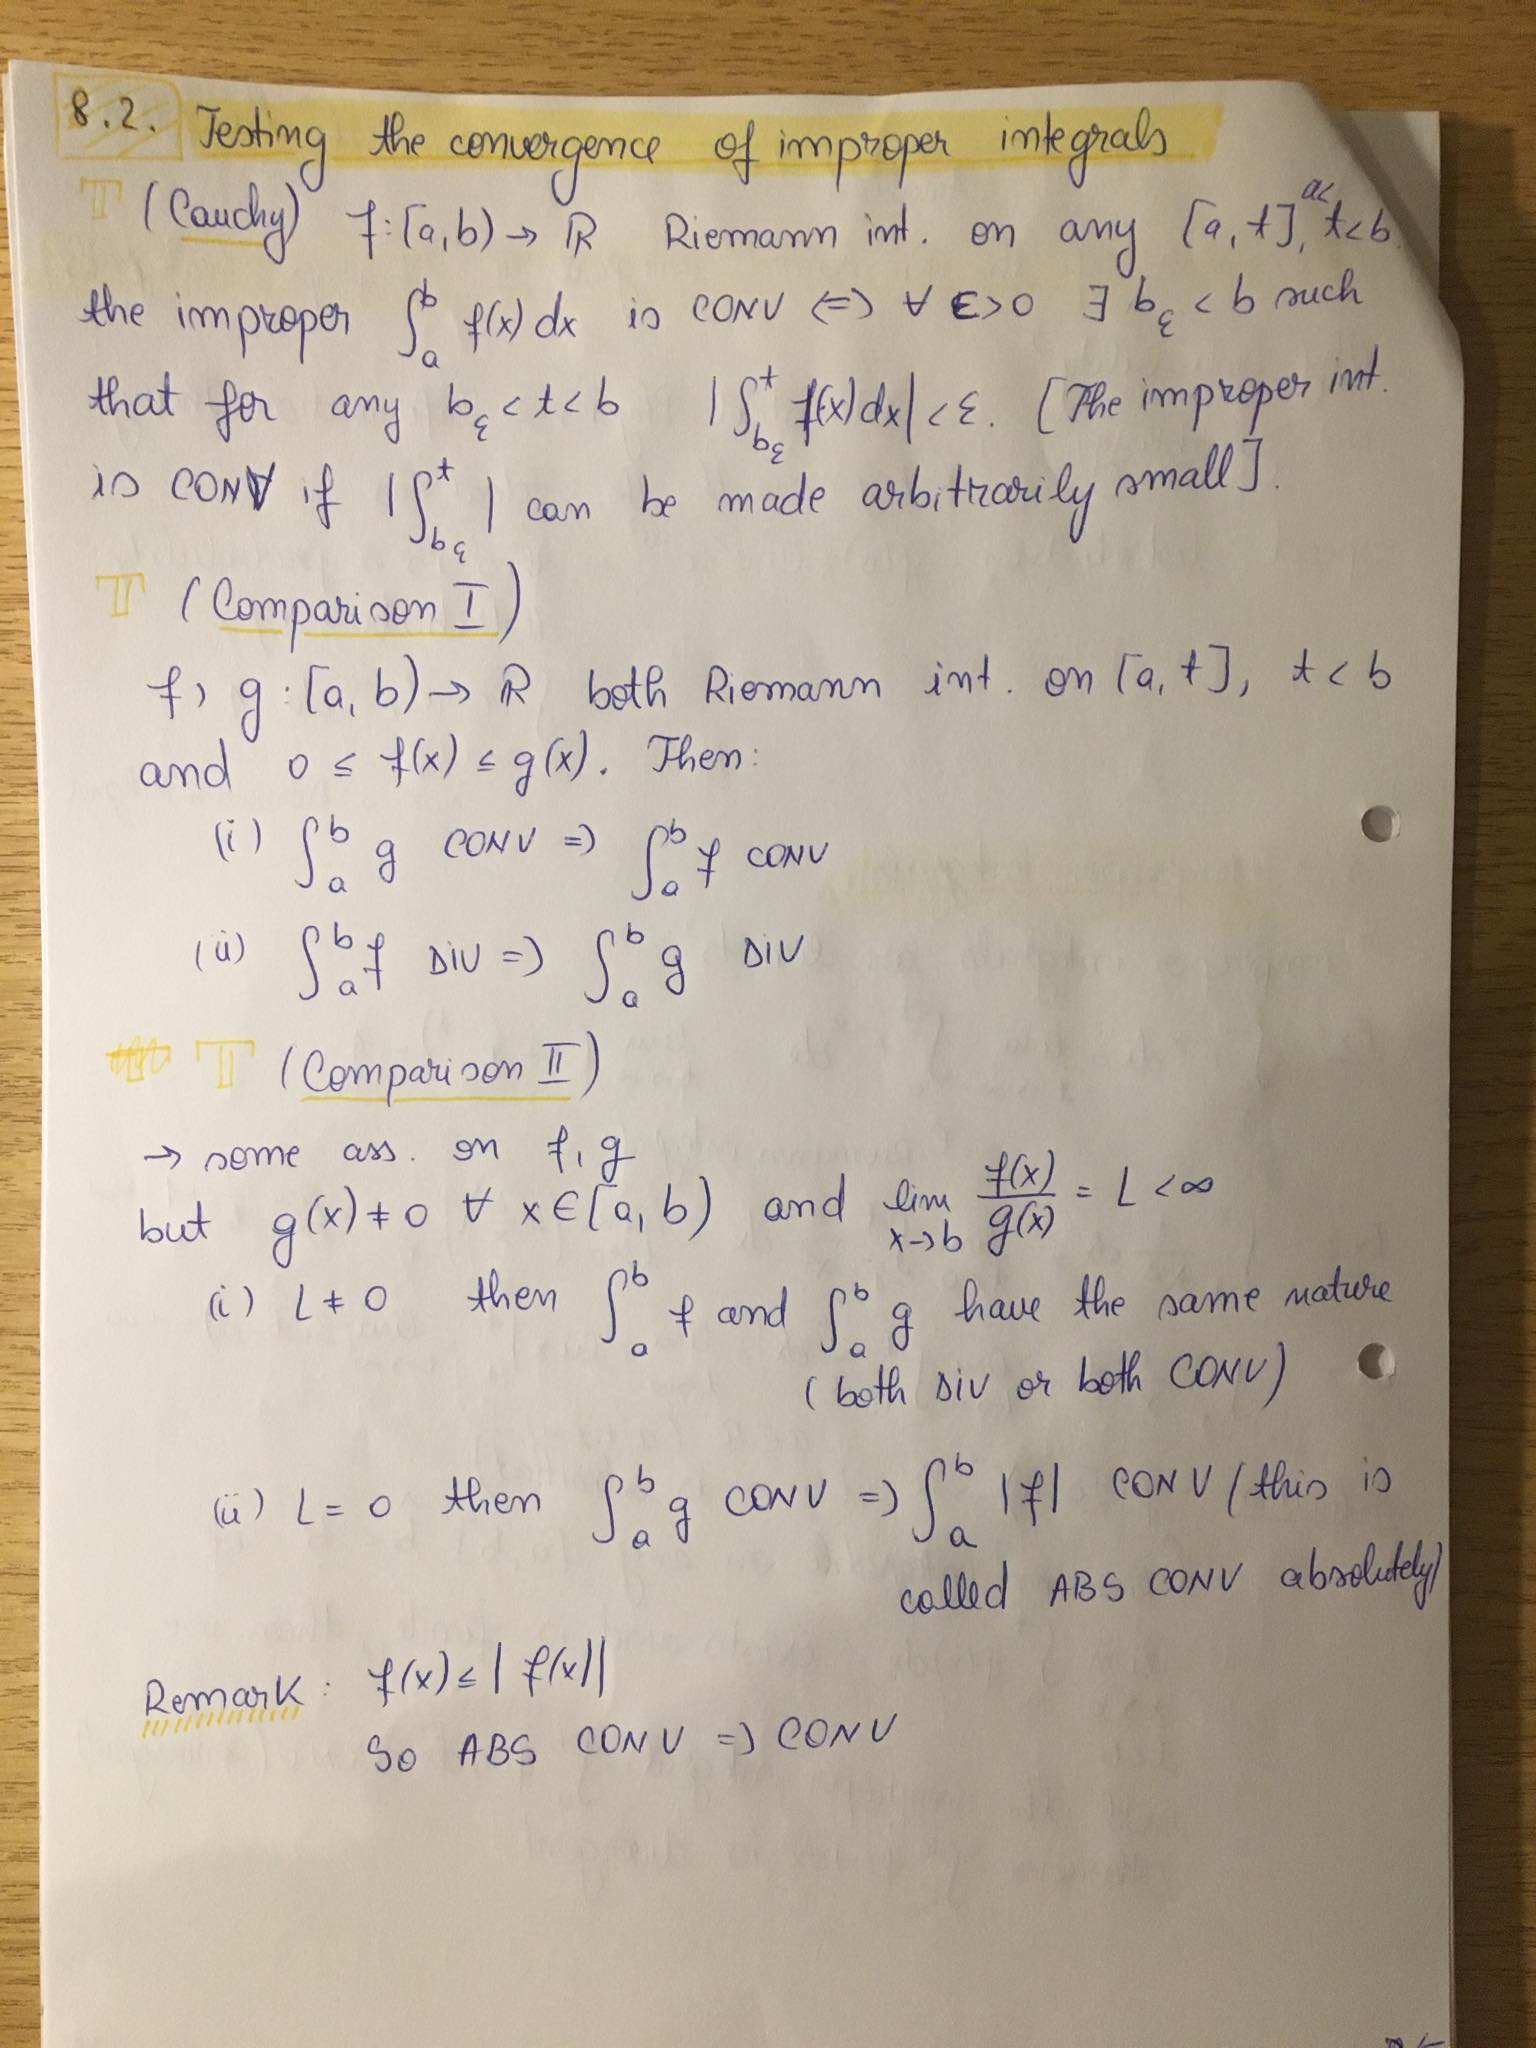 8.2. Testing the convergence of improper integrals
T (Cauchy) f:[a,b) → ℝ Riemann int. on any [a,t], a< t<b.
the improper ∫_a^b f(x)dx is CONV <=> ∀ ε>0 ∃ b_ε < b such
that for any b_ε < t < b |∫_{b_ε}^t f(x)dx| < ε. [The improper int.
is CONV if |∫_{b_ε}^t | can be made arbitrarily small].
T (Comparison I)
f, g : [a,b) → ℝ both Riemann int. on [a,t], t < b
and 0 ≤ f(x) ≤ g(x). Then:
(i) ∫_a^b g CONV => ∫_a^b f CONV
(ii) ∫_a^b f DIV => ∫_a^b g DIV
T (Comparison II)
→ some ass. on f, g
but g(x) ≠ 0 ∀ x ∈ [a,b) and lim_{x→b} f(x)/g(x) = L < ∞
(i) L ≠ 0 then ∫_a^b f and ∫_a^b g have the same nature
(both DIV or both CONV)
(ii) L = 0 then ∫_a^b g CONV => ∫_a^b |f| CONV (this is
called ABS CONV absolutely)
Remark: f(x) ≤ |f(x)|
So ABS CONV => CONV